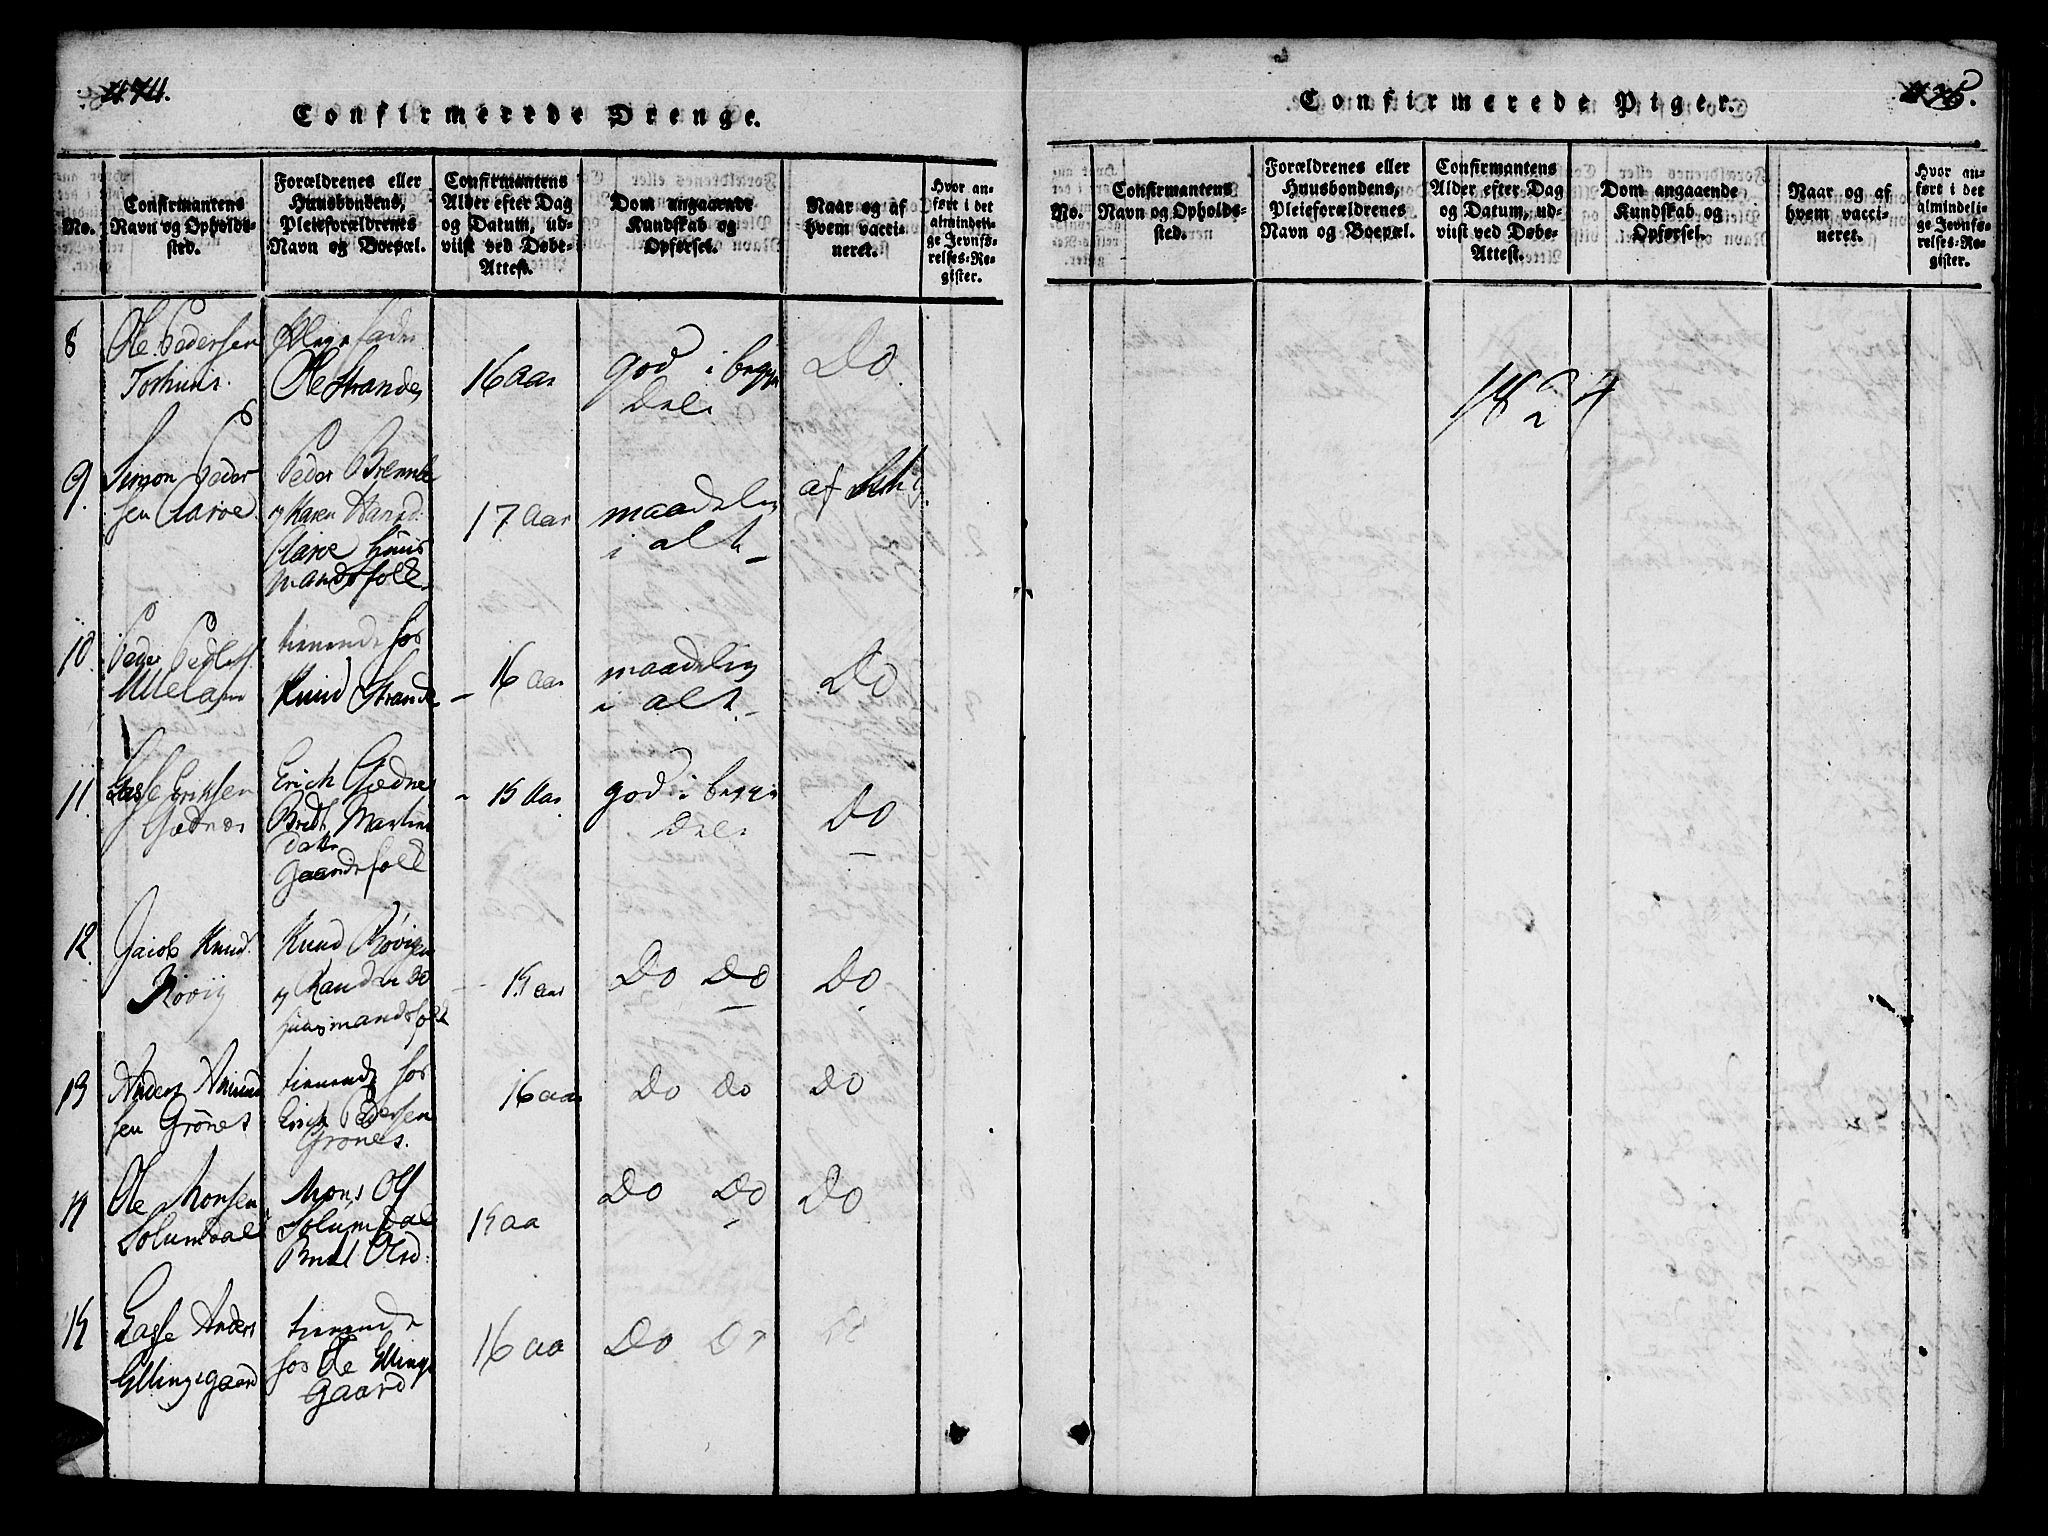 474.
Confirmerede Drenge.
No.
Confirmantens
Navn og Opholds-
sted.
Forældrenes eller
Huusbondens,
Pleieforældrenes
Navn og Boepæl.
Confirmantens
Alder efter Dag
og Datum, ud-
viist ved Døbe-
Attest.
Dom angaaende
Kundskab og
Opførsel.
Naar og af
hvem vacci-
neret.
Hvor an-
ført i det
almindeli-
ge Jevnfø-
relses-Re-
gister.
8
Ole Pedersen
Torhuus.
Ole Strande
16 aar
god i begge
Dele
Do.
9.
Simon Peder
sen Aarøe
Peder
og Karen Hansd.
Aarøe Huus
mandsfolk
17 aar
maadelig
i alt
af
10.
Peder
tienende for
Knud Strande
16 aar
maadelig
i alt
Do
11.
Lasse Eriksen
Gjednes
Erich Gjednes
Bredt Martins
datter
Gaardsfolk
15 Aar
god i begge
Dele
Do
12.
Jacob Knud.
Røvig
Knud Røvigen
og
huusmandsfolk
15 aar
Do Do
Do
13
Anders Amund
sen Grønes
tienende for
Erich Pedersen
Grønes.
16 aar
Do Do
Do
14
Ole Monsen
Solumdal
Mons Ols
Solumdal
Bredt Olsd.
15 aa
Do Do
Do
15
Lasse Anders
Ellingsgaard
tienende
for Ole Ellings
Gaard
16 aa
Do Do
Do
475.
Confirmerede Piger.
No.
Confirmantens
Navn og Opholds-
sted.
Forældrenes eller
Huusbondens,
Pleieforældrenes
Navn og Boepæl.
Confirmantens
Alder efter Dag
og Datum, ud-
viist ved Døbe-
Attest.
Dom angaaende
Kundskab og
Opførsel.
Naar og af
hvem vacci-
neret.
Hvor an-
ført i det
almindeli-
ge Jevnfø-
relses-Re-
gister.
1824